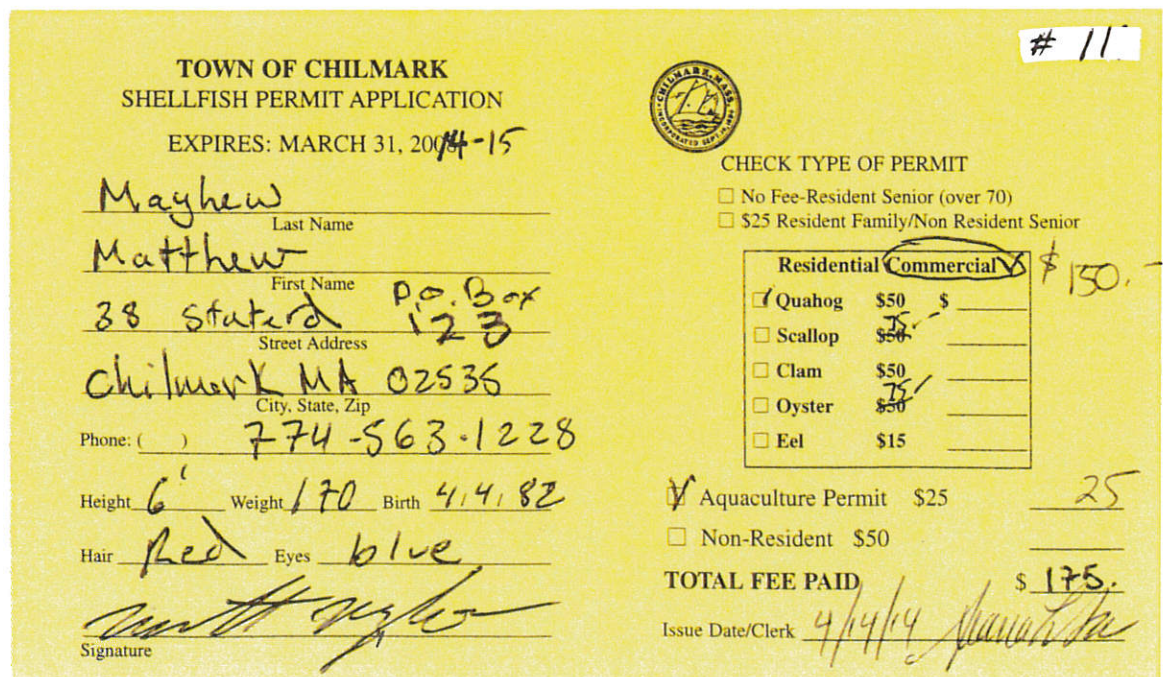 # 11
TOWN OF CHILMARK
SHELLFISH PERMIT APPLICATION
EXPIRES: MARCH 31, 2014-15
Mayhew
Last Name
Matthew
First Name
38 State rd P.O. Box 123
Street Address
Chilmark MA 02535
City, State, Zip
Phone: ( ) 774-563-1228
Height 6' Weight 170 Birth 4.4.82
Hair Red Eyes blue
Signature
CHILMARK, MASS.
INCORPORATED SEPT. 14, 1694
CHECK TYPE OF PERMIT
☐ No Fee-Resident Senior (over 70)
☐ $25 Resident Family/Non Resident Senior
Residential Commercial ✓ $150.-
☑ Quahog $50 $
☐ Scallop $50 75.-
☐ Clam $50
☐ Oyster $50 75
☐ Eel $15
☑ Aquaculture Permit $25 25
☐ Non-Resident $50
TOTAL FEE PAID $ 175.
Issue Date/Clerk 4/14/14